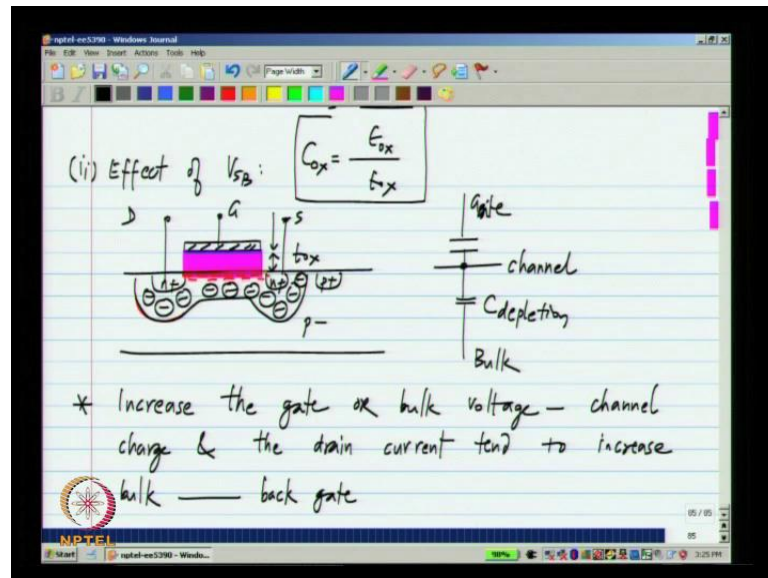 nptel-ee5390 - Windows Journal
File Edit View Insert Actions Tools Help
Page Width
(ii) Effect of V_SB :
C_ox = ε_ox / t_ox
D G S
t_ox
n+ n+ p+
p-
Gate
channel
C_depletion
Bulk
* Increase the gate or bulk voltage — channel
charge & the drain current tend to increase
bulk —— back gate
NPTEL
85 / 85
85
Start nptel-ee5390 - Windo...
98% 3:25 PM